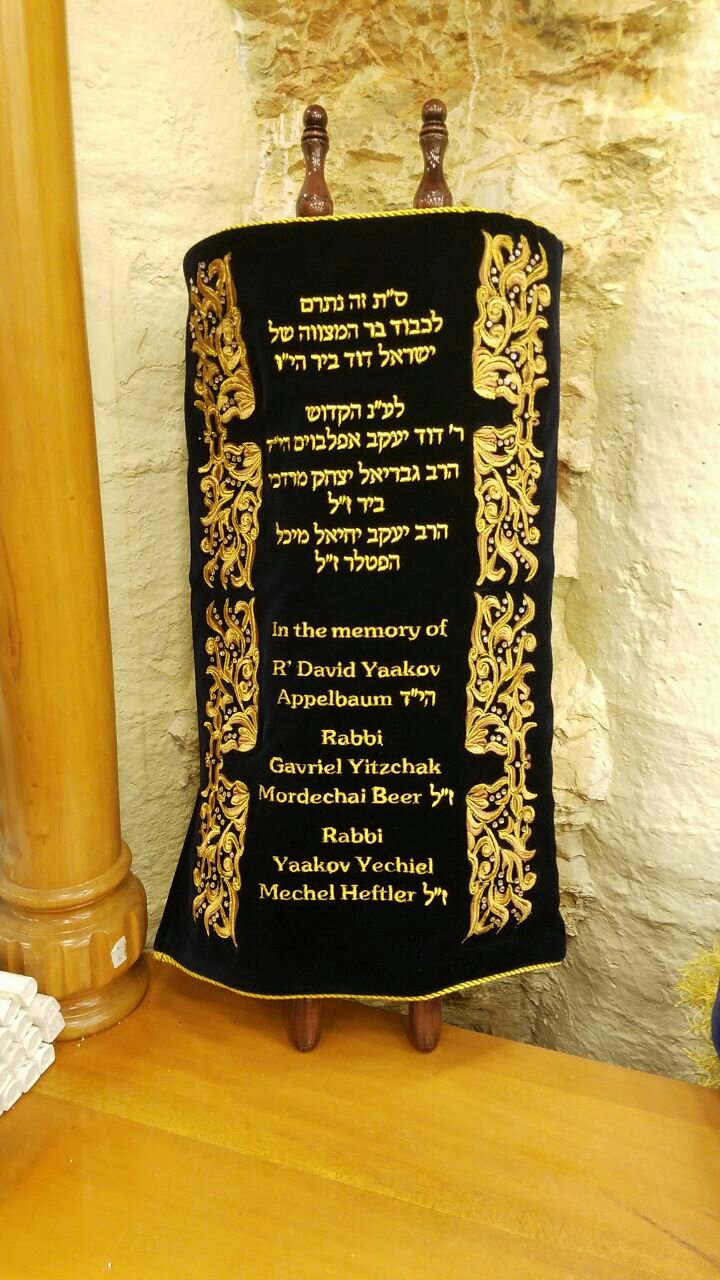 ס"ת זה נתרם
לכבוד בר המצווה של
ישראל דוד ביר הי"ו
לע"נ הקדוש
ר' דוד יעקב אפלבוים הי"ד
הרב גבריאל יצחק מרדכי
ביר ז"ל
הרב יעקב יחיאל מיכל
הפטלר ז"ל
In the memory of
R' David Yaakov
Appelbaum הי"ד
Rabbi
Gavriel Yitzchak
Mordechai Beer ז"ל
Rabbi
Yaakov Yechiel
Mechel Heftler ז"ל